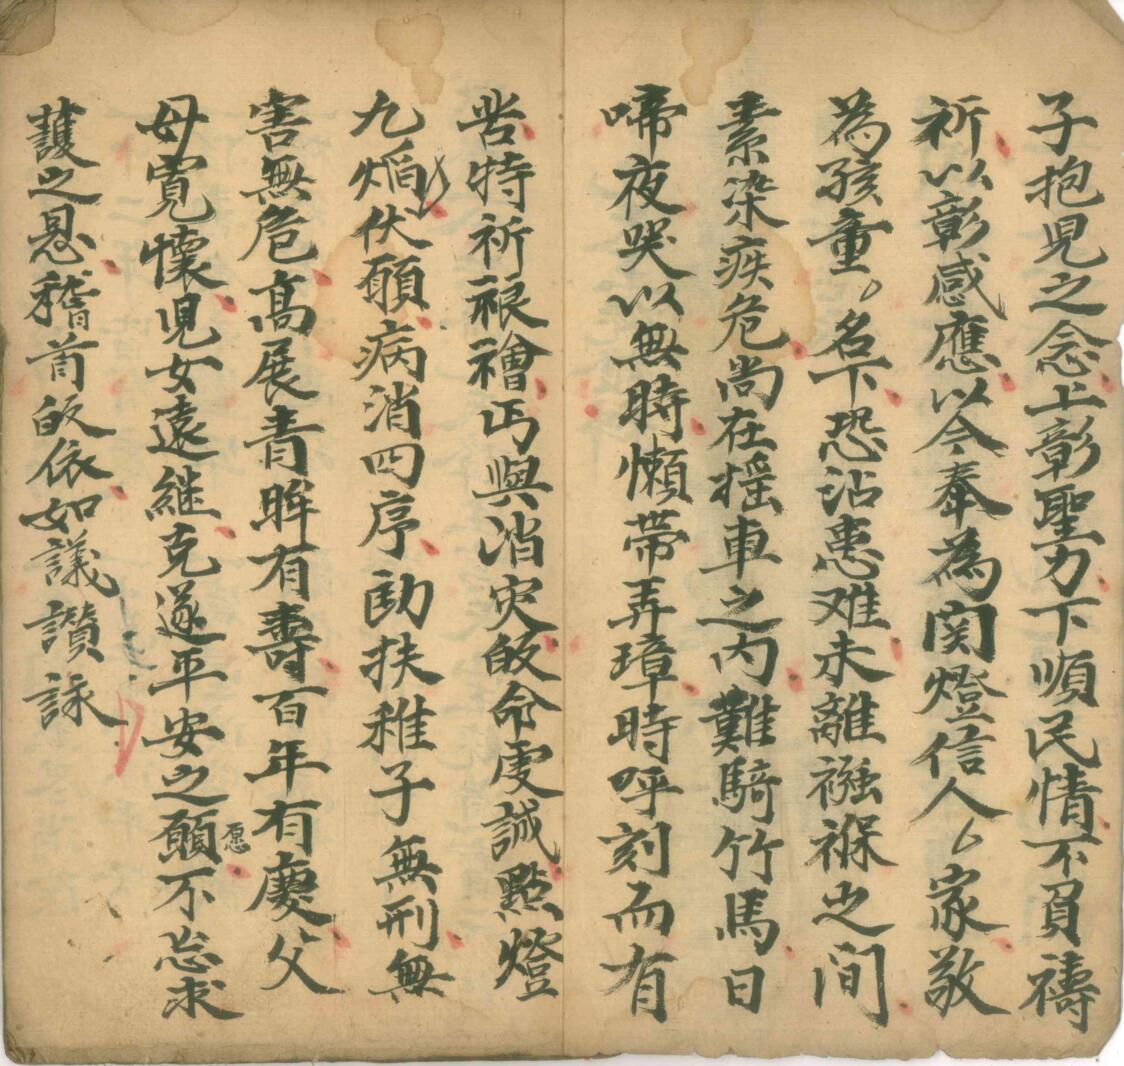 子抱児之念上彰聖力下順民情不負禱
祈以彰感應以今奉為関燈信人ム家敬
為孩童ム名下恐沾患难未離襁褓之间
素染疾危尚在摇車之内難騎竹馬日
啼夜哭以無時懒带弄璋時呼刻而有
特祈禳禬丏與消灾皈命虔誠點燈
九焰伏願病消四序助扶稚子無刑無
害無危髙展青眸有壽百年有慶父
母寛懐児女遠继克遂平安之願愿不忘求
護之恩稽首皈依如議讃詠